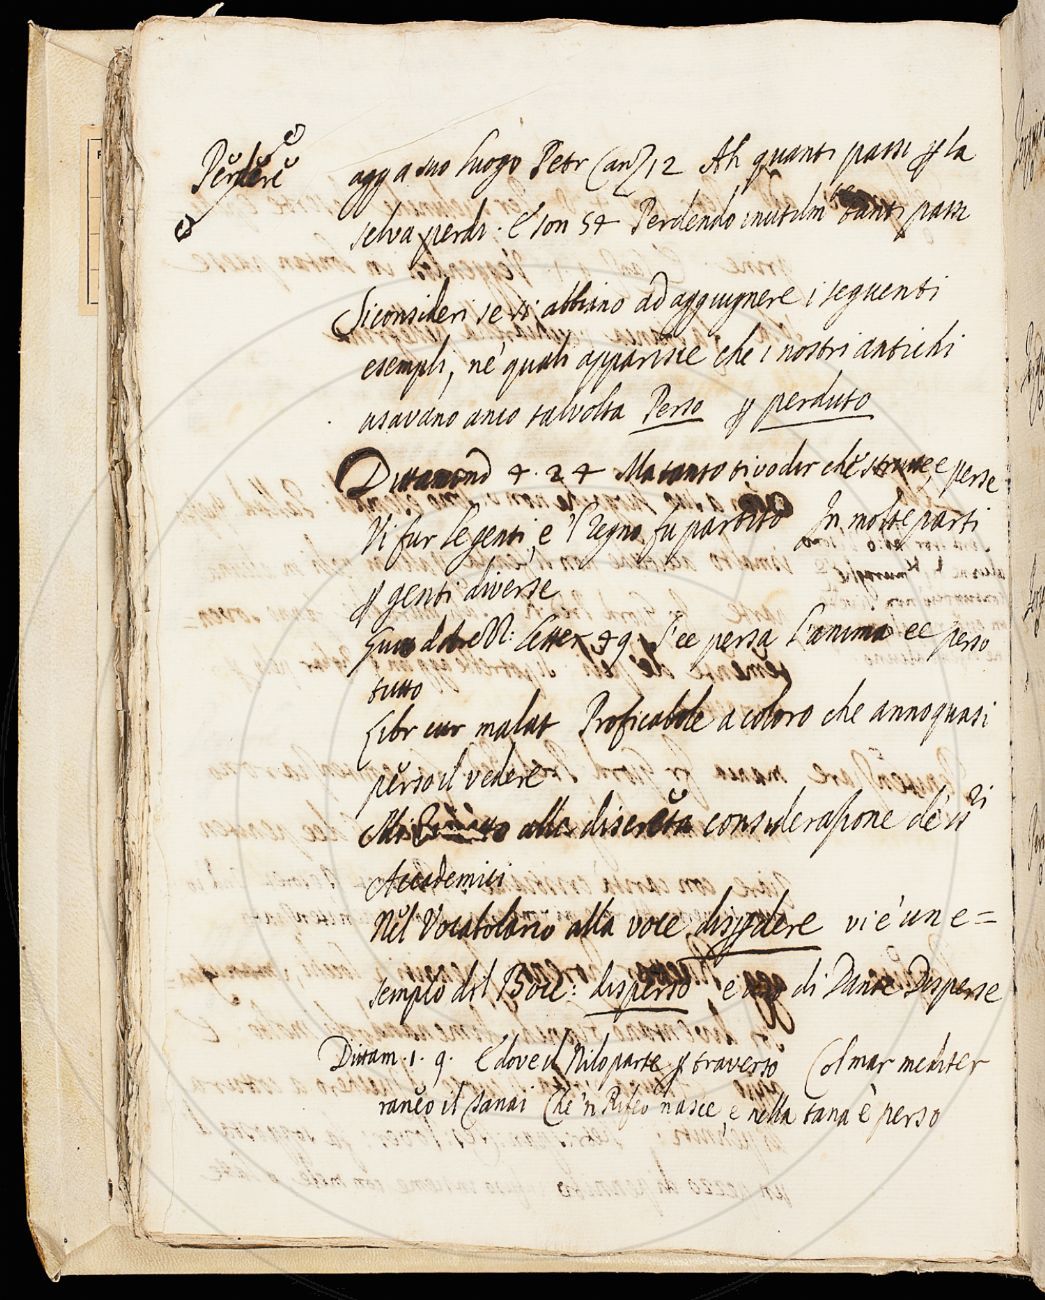 Perdere
agg a suo luogo Petr Canz 12 Ah quanti passi ꝑ la
selva perdi. E son 54 Perdendo inutilm^te tanti passi
Si consideri se si abbiano ad aggiugnere i seguenti
esempli, ne' quali apparisce che i nostri antichi
usavano anco talvolta Perso ꝑ perduto
Dittamond 4. 24 Ma tanto ti vo dir che strutte, e perse
Vi fur le genti, e 'l Regno fu partito In molte parti
ꝑ genti diverse
Guitt Letter 49 S'ee persa l'anima ee perso
tutto
Libr cur malat Proficabole a coloro che anno quasi
perso il vedere
alla discreta considerazione de' SS^ri
Accademici
Nel Vocabolario alla voce disꝑdere vi è un e=
semplo del Bocc: disperso e di Dante Disperse
Dittam. 1. 9. E dove il Nilo parte ꝑ traverso Col mar mediter
raneo il Tanai Che 'n Rifeo nasce, e nella tana è perso